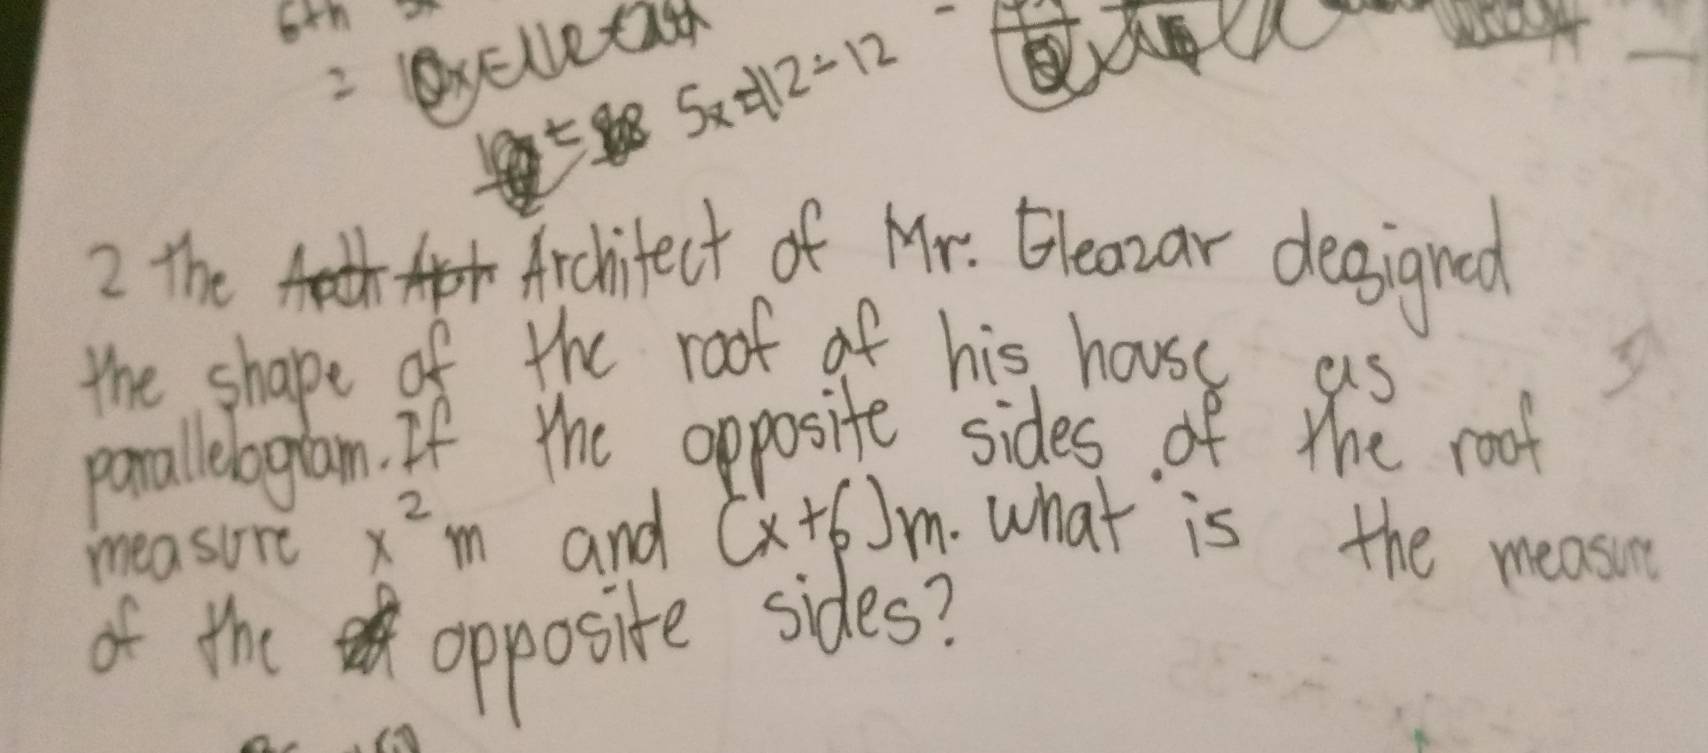 6th
=
5x = 12 - 12
2 The Architect of Mr. Eleazar designed
the shape of the roof of his house as
parallelogram. If the opposite sides of the roof
measure x² m and (x+6)m. what is the measure
of the opposite sides?